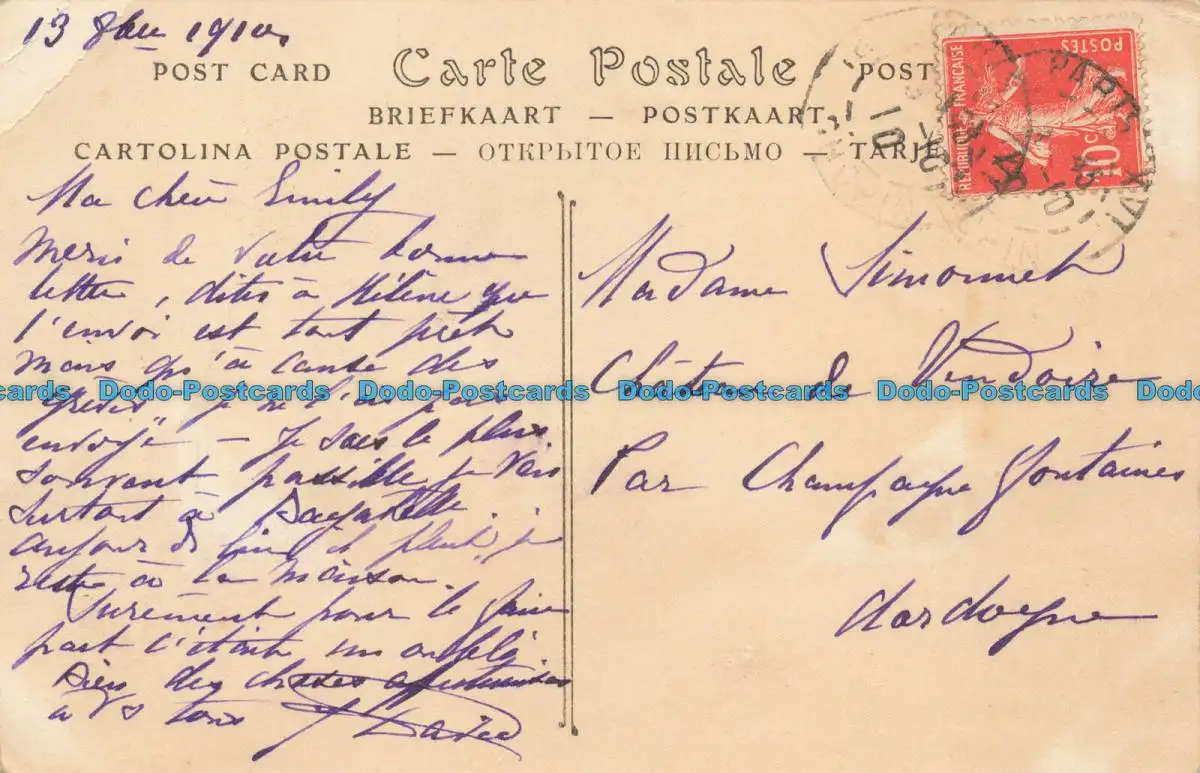 13 8bre 1910
POST CARD Carte Postale POST
BRIEFKAART — POSTKAART
CARTOLINA POSTALE — ОТКРЫТОЕ ПИСЬМО — TARJE
POSTES
REPUBLIQUE FRANÇAISE
10c
PARIS
Ma chère Emily
merci de votre bonne
lettre, dites à Hélène que
l'envoi est tout prêt
mais qu'à cause des
"grèves" je ne l'ai pas
envoyé — Je sors le plus
souvent possible je vais
surtout à Bagatelle.
aujourd'hui il pleut, je
reste à la maison.
Surement pour le faire
part c'était un oubli
Bien des choses affectueuses
à Vs tous
Madame Simonnet
Château de Vendoire
Par Champagne Fontaines
Dordogne
Dodo-Postcards Dodo-Postcards Dodo-Postcards Dodo-Postcards Dodo-Postcards